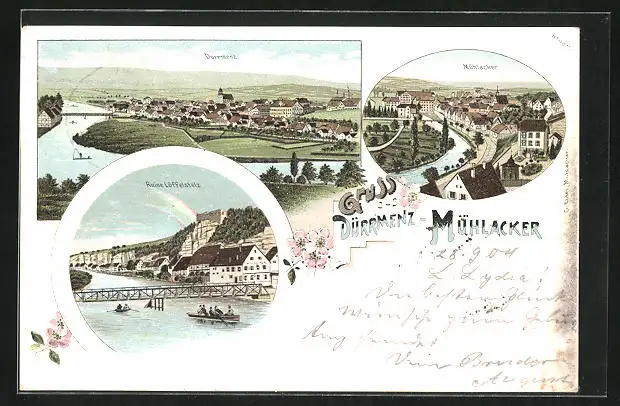 Dürrmenz
Mühlacker
Ruine Löffelstelz
Gruss
aus
DÜRRMENZ-MÜHLACKER
28.9.04
L. Lydia!
Die besten Glück
wünsche zum
Dein Bruder
August